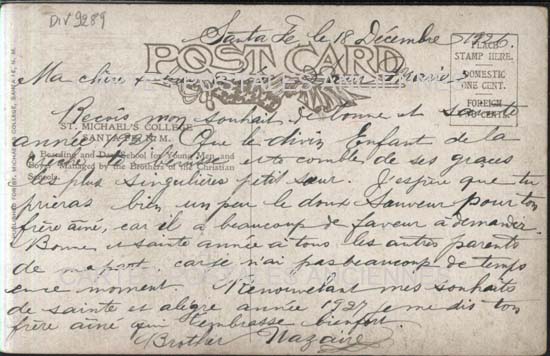 DIV 9289
Santa Fe, le 18 Décembre, 1926.
POST CARD
PLACE
STAMP HERE.
DOMESTIC
ONE CENT.
FOREIGN
CENTS.
Ma chère
Reçois mon souhait de bonne et sainte
ST. MICHAEL'S COLLEGE
SANTA FE, N.M.
A Boarding and Day School for Young Men and
Boys. Managed by the Brothers of the Christian
Schools.
année 1927. Que le divin Enfant de la
comble de ses graces
les plus singulières petit sœur. J'espère que tu
prieras bien un peu le doux Sauveur pour ton
frère ainé, car il a beaucoup de faveur a demander.
Bonne et sainte année à tous les autres parents
de ma part, car je n'ai pas beaucoup de temps
en ce moment. Renouvelant mes souhaits
de sainte et alègre année 1927 je me dis ton
frère ainé qui t'embrasse bien fort.
Brother Nazaire
CARTES POSTALES ANCIENNES